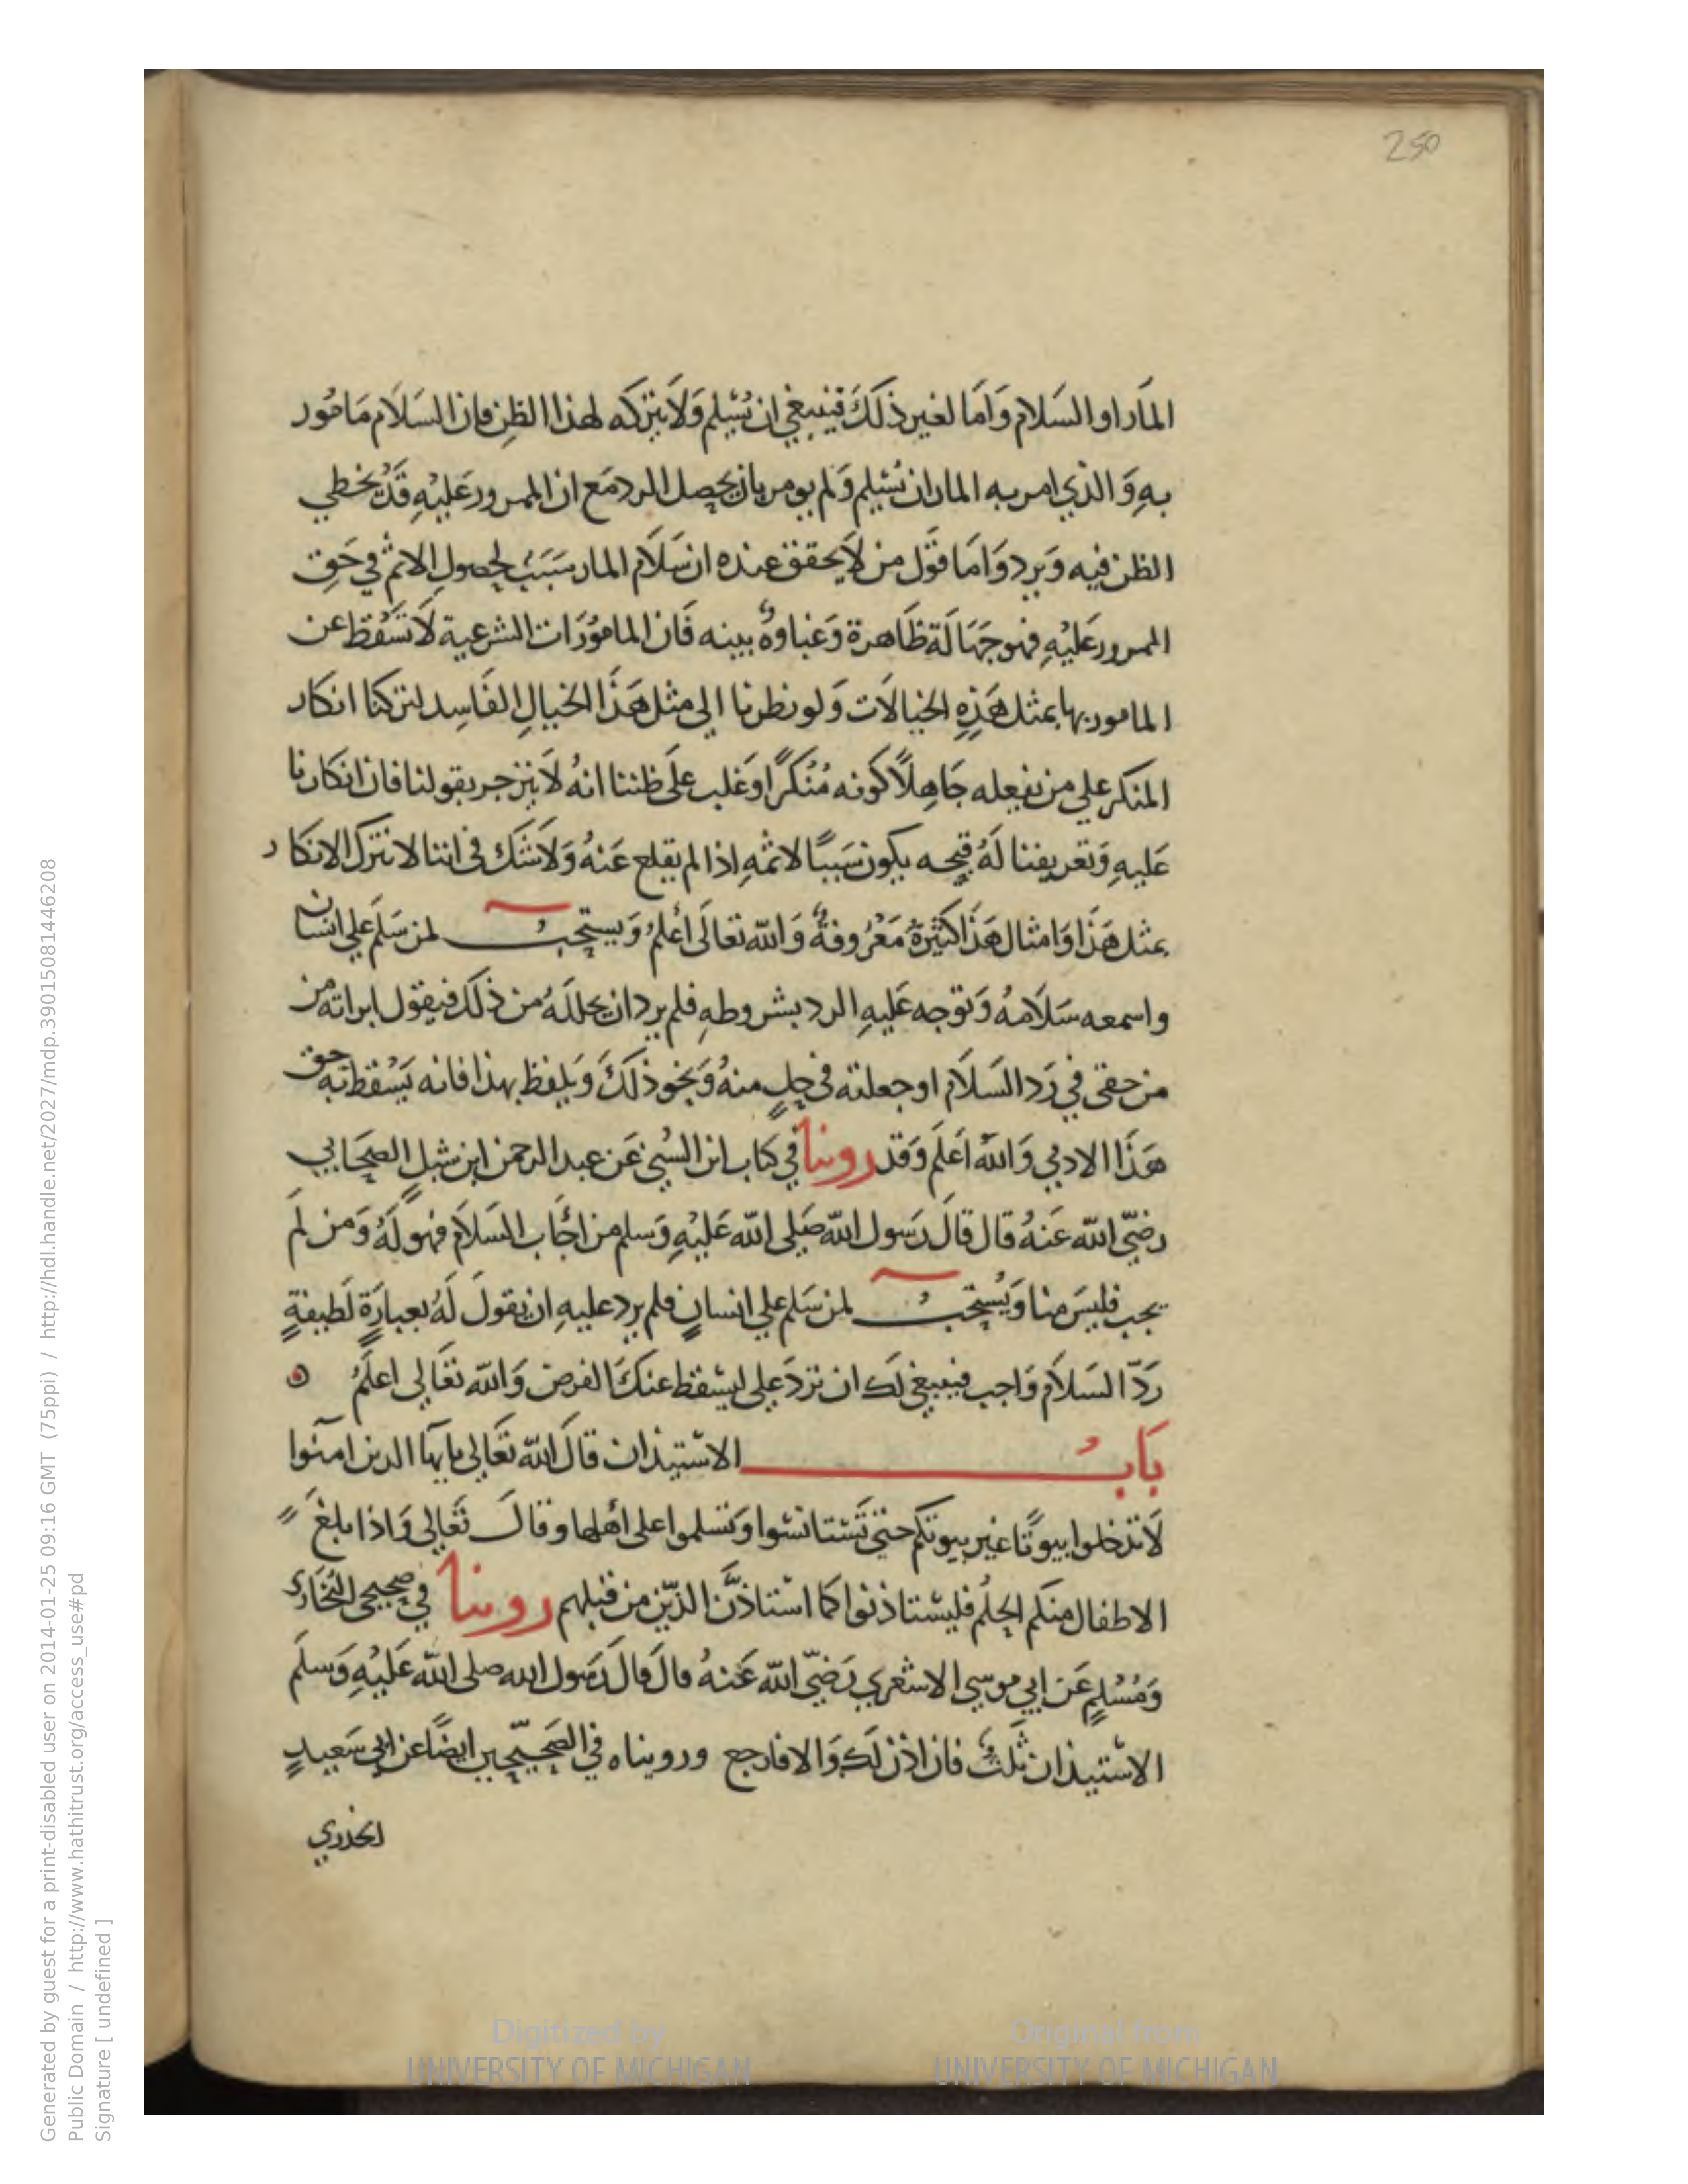 250
المَار او السَلام وَامَا لغير ذلكَ فينبغي ان يُسَلِم وَلَا يتركه لهذا الظن فان السَلَام مَامُور
بهِ وَالذي امر به المار ان يُسَلِم وَلم يومر بان يحصل الرد مَع ان الممرور عَليْهِ قَدْ يُخطي
الظن فيه وَيرد وَامَا قَول من لَا يحقق عنده ان سَلَام المار سَبَبٌ لحصولِ الاثم في حَقِ
الممرور عَليْهِ فهو جَهَالَة ظَاهرة وَغباوةٌ بينه فَان المامُورَات الشرعية لَا تسْقط عن
المامور بها بمثل هَذِهِ الخيالَات وَلو نظرنا الي مثل هَذَا الخيالِ الفَاسِد لتركنا انكار
المنكر علي من يفعله جَاهِلًا كونه مُنْكرًا وَغلب عَلَى ظننا انهُ لَا ينزجر بقولنا فان انكارنا
عَليهِ وَتعريفنا لَهُ قبحه يكون سَببًا لاثمهِ اذا لم يقلع عَنهُ وَلَا شَك في اننا لا نترك الانكار
بمثل هَذَا وَامثال هَذَا كثيْرَةٌ مَعْرُوفةٌ وَالله تعَالَى أعْلمُ وَيستحبُ لمن سَلَم علي انسَان
واسمعه سَلَامهُ وَتوجه عَليهِ الرد بشروطهِ فلم يرد ان يحللَهُ من ذلكَ فيقول ابراته من
من حقى في رَد السَلَام او جعلته في حِلٍ منهُ وَنحو ذلكَ وَيلفظ بهذا فانه يَسْقط به حق
هَذَا الادمي وَاللهُ اعَلَم وَقد روينا في كتاب ابن السُني عَن عبد الرحمن ابن شبلٍ الصحَابي
رضيَ الله عَنهُ قال قالَ رَسول الله صَلى الله عَليْهِ وَسلم من اجَاب السَلَام فهو لَهُ وَمن لَم
يجب فليسَ منا وَيُسْتحبُ لمن سَلم علي انسانٍ فلم يرد عليهِ ان يقولَ لَهُ بعبارَةٍ لَطيفةٍ
رَدّ السَلَام وَاجب فينبغي لك ان تردَ علي ليسْقط عنكَ الفرض وَالله تعَالى اعلَمُ
بَابُ الاسْتيذان قالَ الله تعَالي يايها الذين امنوا
لَا تدخلوا بيوتًا غير بيوتكم حتىَ تَسْتانسُوا وَتسلموا على أهلها وقالَ تَعَالي وَاذا بلغَ
الاطفال منكم الحلُم فليسْتاذنوا كما اسْتاذَنَ الذّين من قبلهم روينا في صحيحي البُخاري
وَمُسْلِمٍ عَن ابي موسي الاشعري رَضيَ الله عَنهُ قال قال رَسول الله صلى الله عَليْهِ وَسلَم
الاسْتيذان ثلثٌ فان اذن لك وَالا فارجع ورويناه في الصَحيحين ايضًا عن ابي سَعيدٍ
الخدري
Digitized by
UNIVERSITY OF MICHIGAN
Original from
UNIVERSITY OF MICHIGAN
Generated by guest for a print-disabled user on 2014-01-25 09:16 GMT (75ppi) / http://hdl.handle.net/2027/mdp.39015081446208
Public Domain / http://www.hathitrust.org/access_use#pd
Signature [ undefined ]